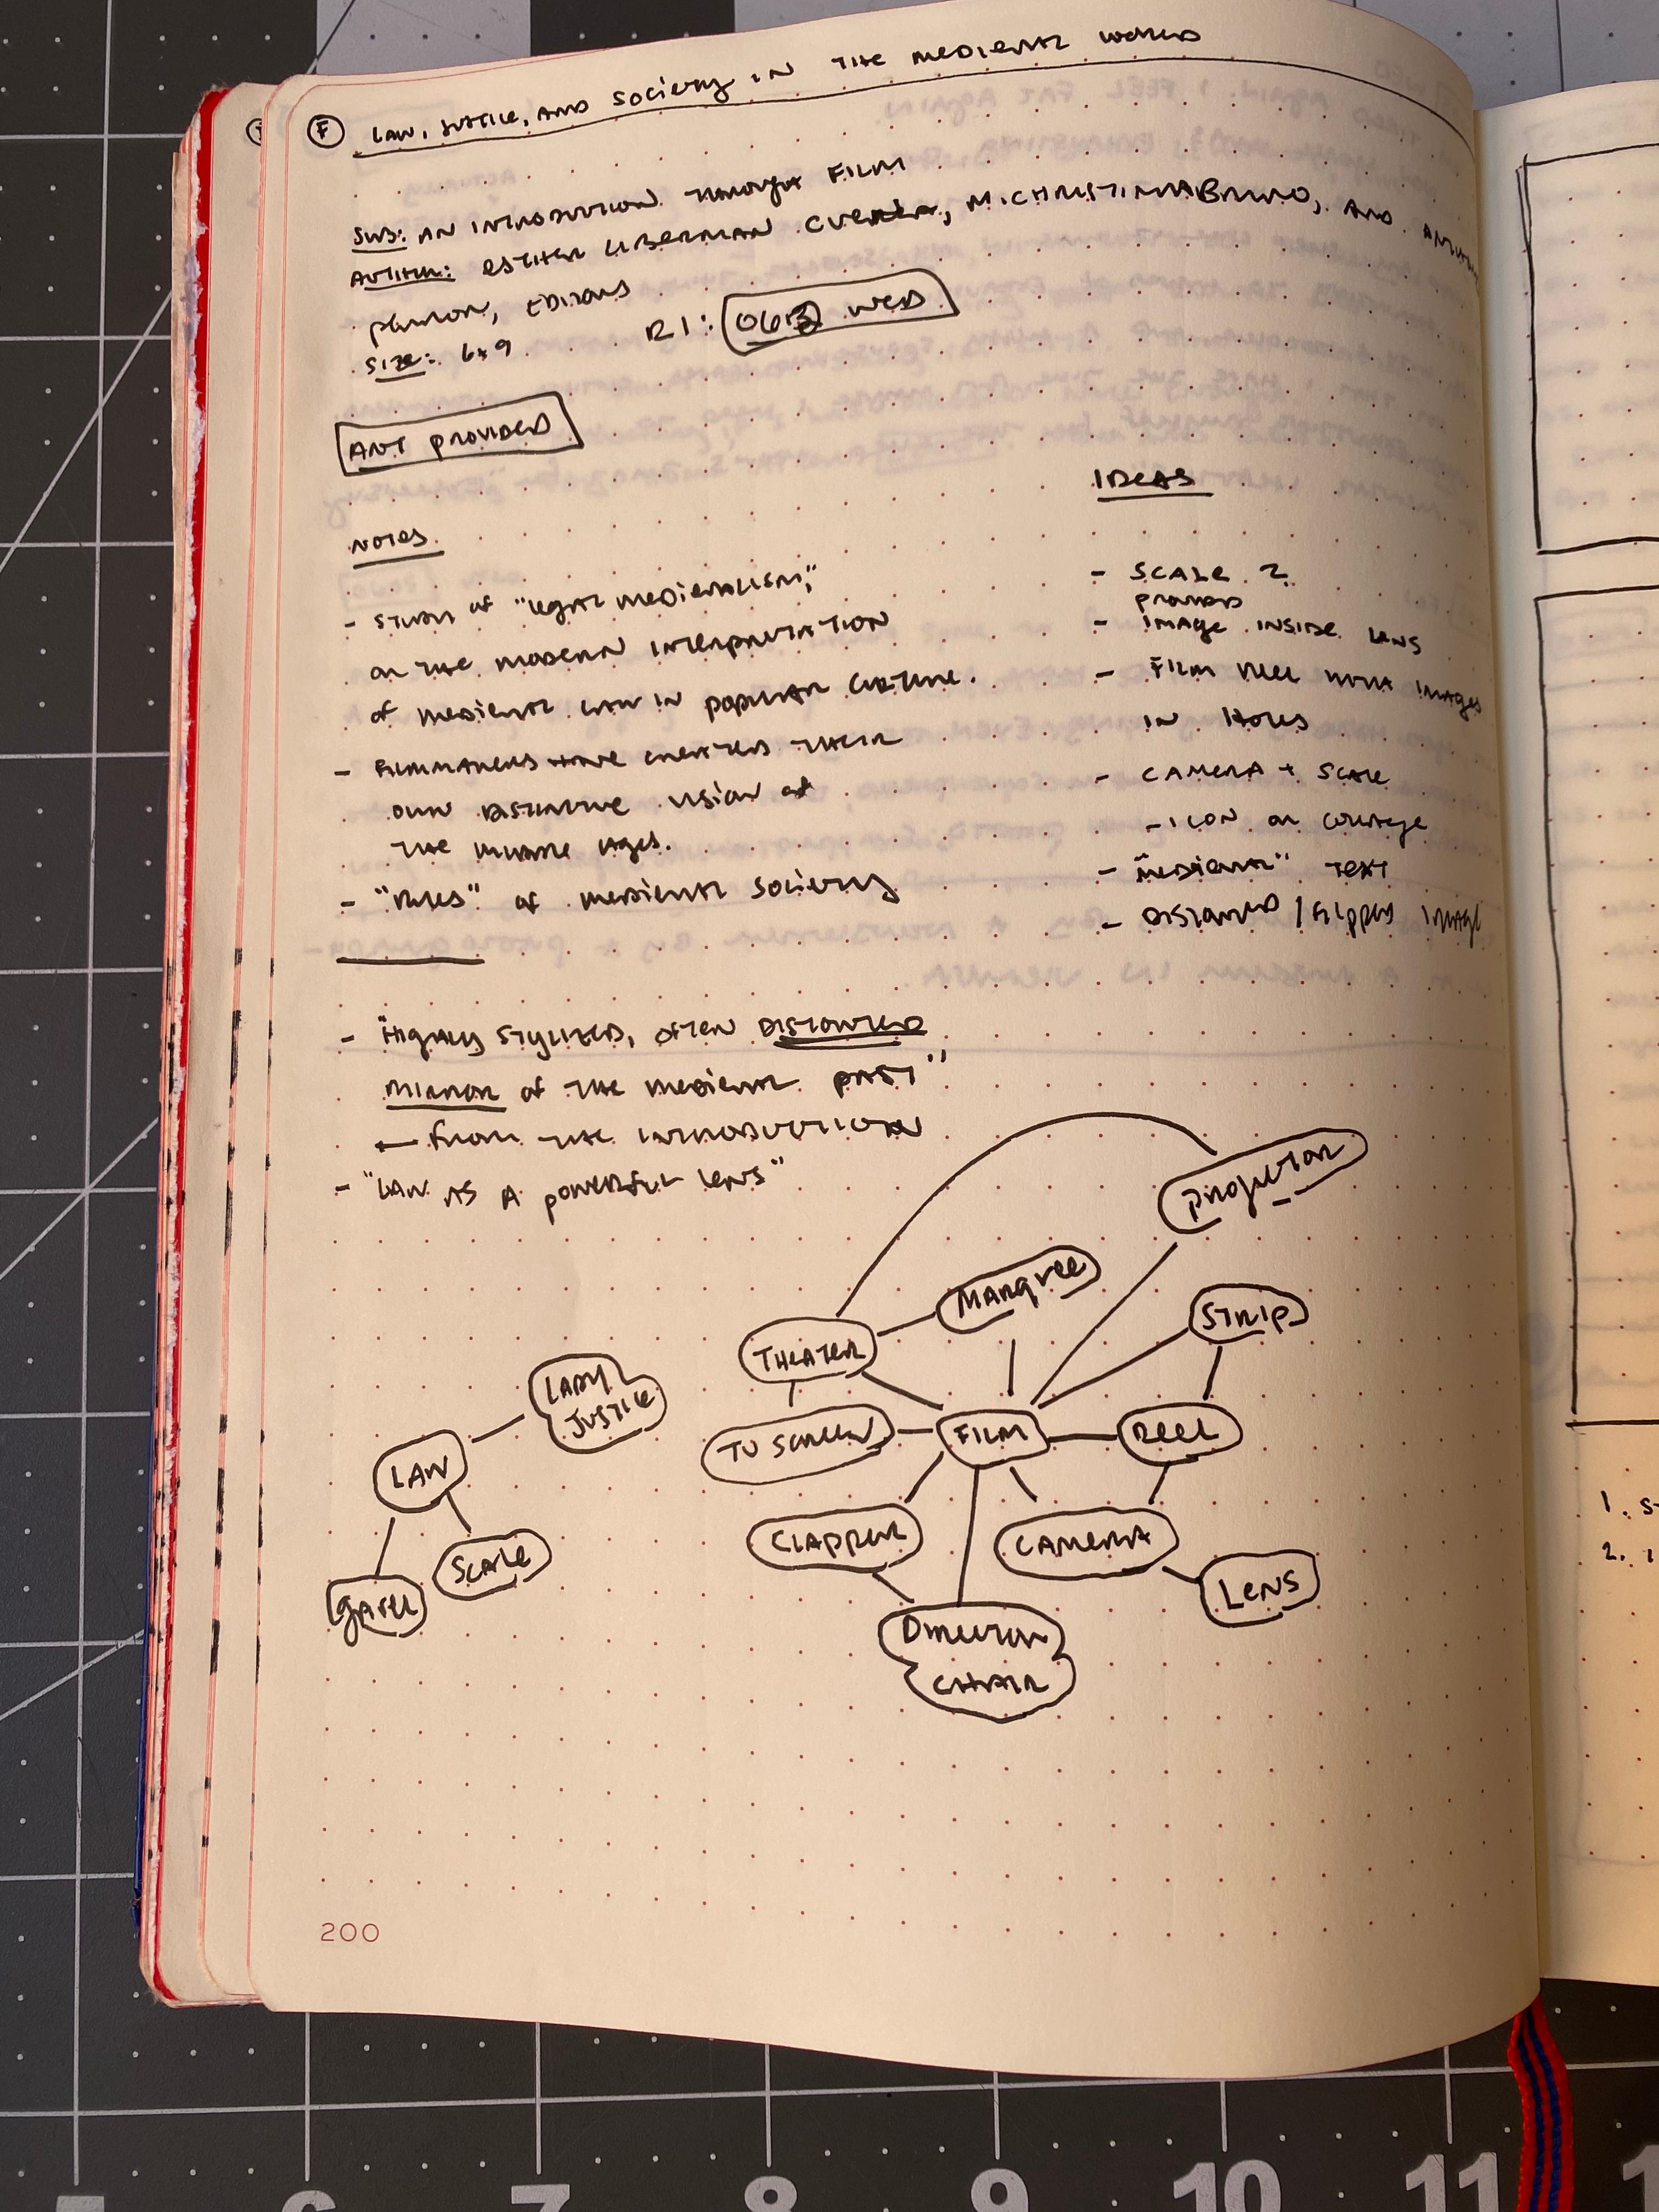 F LAW, JUSTICE, AND SOCIETY IN THE MEDIEVAL WORLD
SUB: AN INTRODUCTION THROUGH FILM
AUTHOR: ESTHER LIBERMAN CUENCA, M. CHRISTINA BRUNO, AND
EDITORS
SIZE: 6x9
R1: WED
ART PROVIDED
NOTES
- STUDY OF "LEGAL MEDIEVALISM,"
OR THE MODERN INTERPRETATION
OF MEDIEVAL LAW IN POPULAR CULTURE.
- FILMMAKERS HAVE CREATED THEIR
OWN DISTINCTIVE VISION OF
THE MIDDLE AGES.
- "RULES" OF MEDIEVAL SOCIETY
- "HIGHLY STYLIZED, OFTEN DISTORTED
MIRROR OF THE MEDIEVAL PAST"
← FROM THE INTRODUCTION
- "LAW AS A POWERFUL LENS"
IDEAS
- SCALE 2
- IMAGE INSIDE LENS
- FILM REEL WITH IMAGES
IN HOLES
- CAMERA + SCALE
- ICON OR COLLAGE
- "MEDIEVAL" TEXT
- DISTORTED / FLIPPED IMAGE
PROJECTOR
MARQUEE
STRIP
THEATER
LADY
JUSTICE
TV SCREEN
FILM
REEL
LAW
CLAPPER
CAMERA
SCALE
LENS
GAVEL
DIRECTOR
CHAIR
200
1. S
2. I
5 6 7 8 9 10 11 1